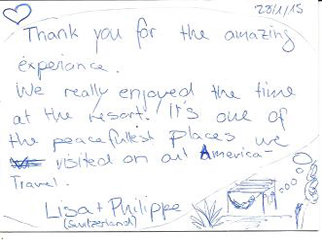 23/1/15
Thank you for the amazing
experience.
We really enjoyed the time
at the resort. It's one of
the peacefullest places we
visited on out America-
Travel.
Lisa + Philippe
(Switzerland)